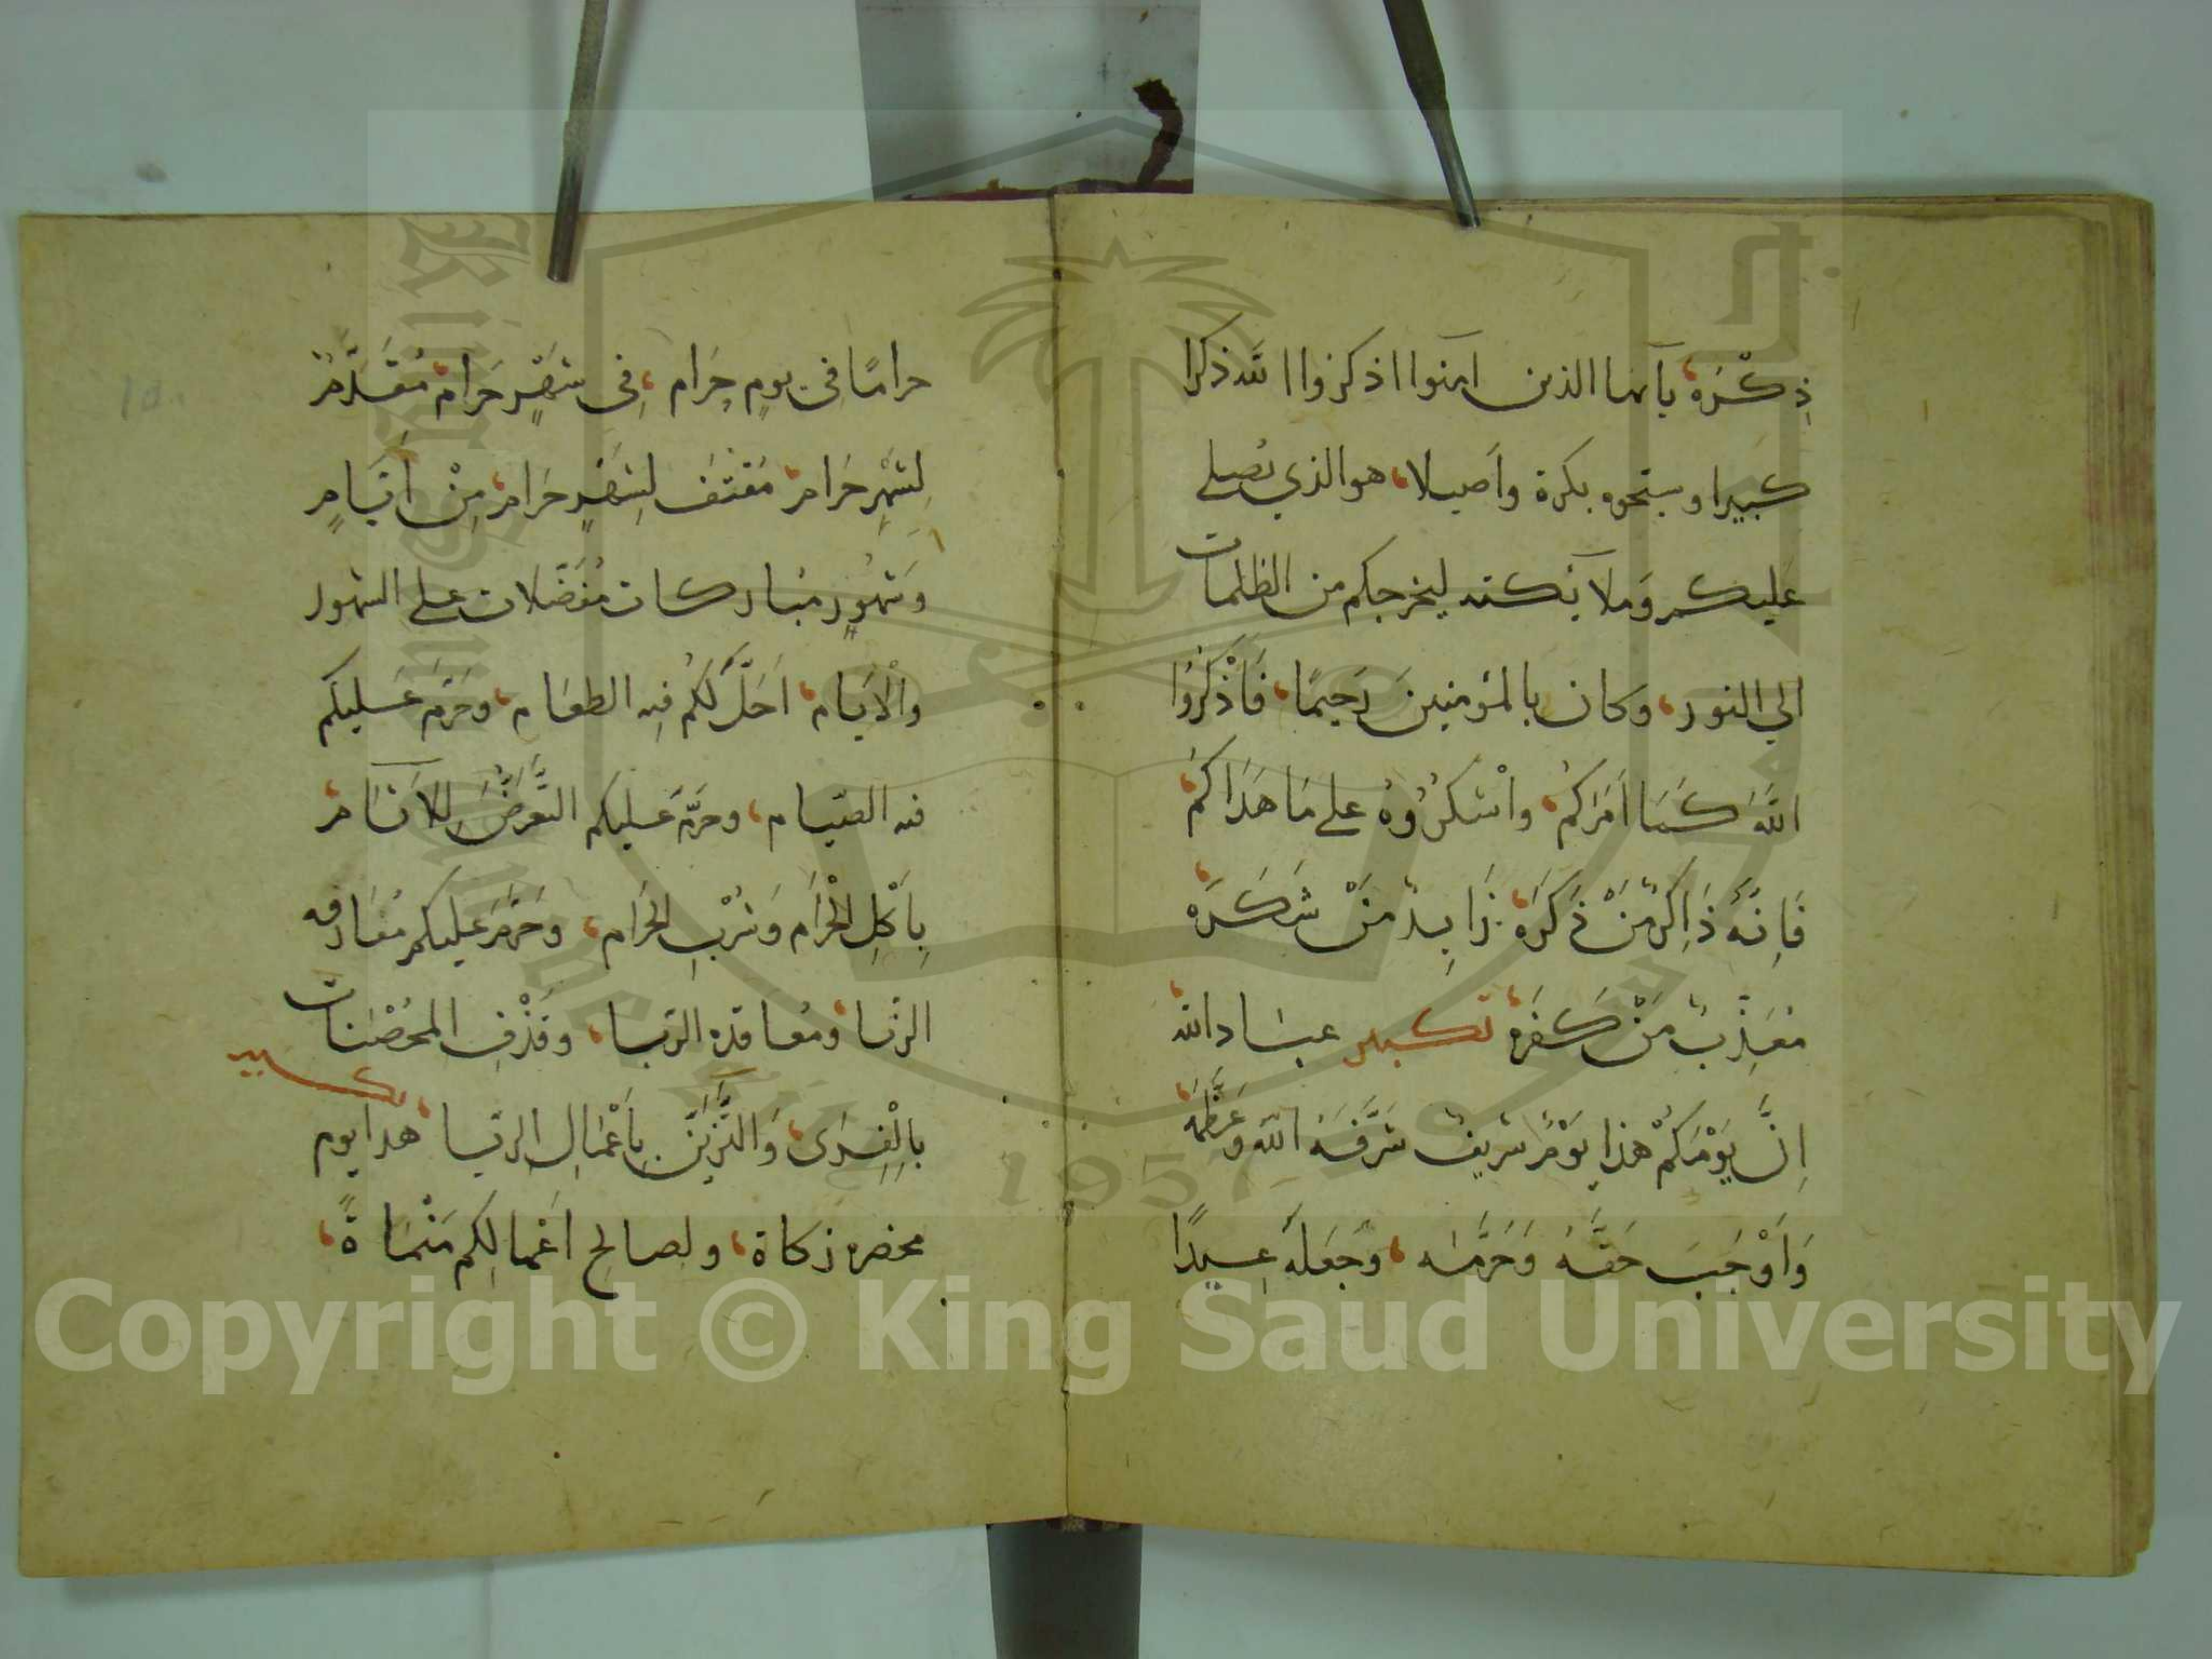 ذِكْرَه، يآيها الذين امنوا اذكروا الله ذكرا
كبيرا وسبحوه بكرة واَصيلا، هو الذي يُصلي
عَليكم وَملآئكته ليخرجكم من الظلمات
الي النور، وَكان بالمؤمنينَ رَحِيمًا، فَاذْكُرُوا
اللَّهَ كَمَا اَمَرَكُمْ، واشْكُرُوهُ علي مَا هَدَاكُمْ،
فَاِنَّهُ ذَاكِرٌ مَنْ ذَكَرَهُ، زَايِدٌ مَنْ شَكَرَه،
مُعَذِّبٌ مَنْ كَفَرَهُ، تكبير عبَاد الله،
اِنَّ يَوْمَكُمْ هذا يَوْمٌ شَرِيفٌ شَرَّفَهُ الله وَعَظَّمَهُ،
وَاَوْجَبَ حَقَّهُ وَحَرَّمَه، وَجَعَلَهُ عِيدًا
حرامًا في يومٍ حَرام، فِي شَهْرٍ حَرام، مُقَدَّمٌ
لِشَهْرٍ حَرام، مُقْتَفٍ لِشَهْرٍ حَرام، مِنْ اَيَّامٍ
وَشهُورٍ مُبَاركات مُفَضَّلات علي الشهور
والْاَيَام، اَحَلَّ لَكُمْ فِيه الطعَام، وَحَرَّمَ عَليكم
فيه الصّيام، وحَرَّمَ عَليكم التَّعَرُّضَ لِلآثَام،
بِاَكْلِ الْحَرَام وَشُرْبِ الحَرام، وَحَرَّمَ عليكم مُقَارفه
الزنا، ومُعاقده الربا، وقَذْفِ المحُصَنات
بِالْفِرَى، وَالتَّزَيُّن بِاَعْمَالِ الرّيا، تكبير هدا يوم
محضره زكاة، ولصالحِ اَعْمَالِكُم مَنْمَاةً،
Copyright © King Saud University
1957